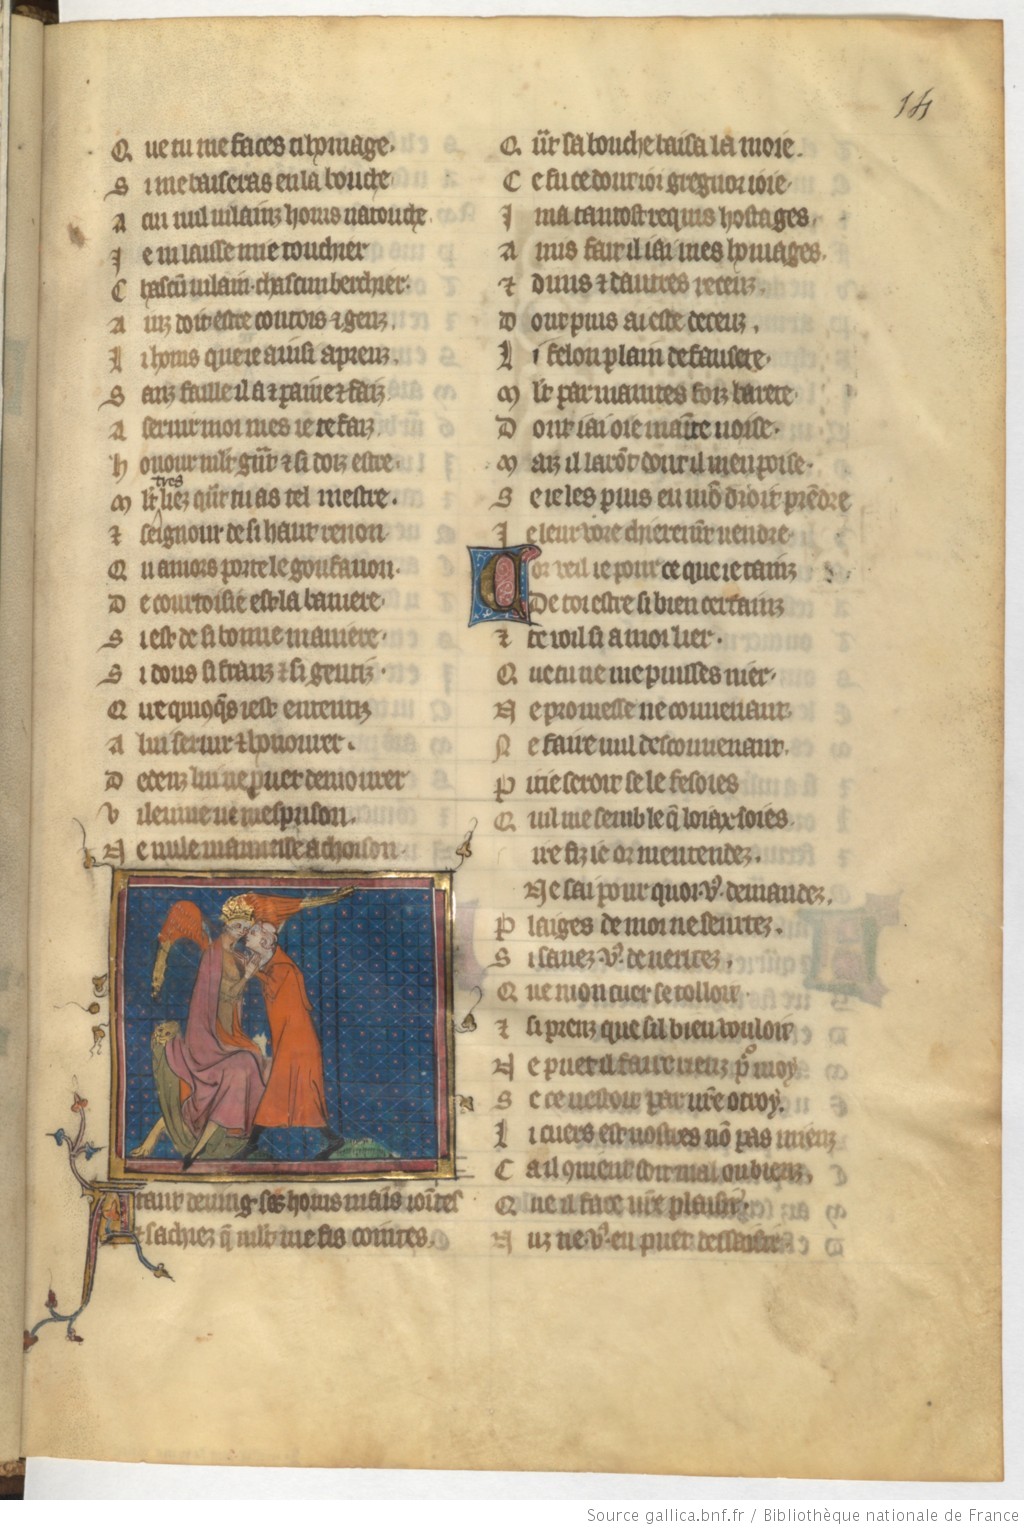 14
Q ue tu me faces ci homage
S i me baiseras en la bouche
A cui nul uilainz homs na touche
J e ni laisse mie touchier
C hascun uilain chascun berchier
A inz doit estre courtois ⁊ genz
L i homs que ie ainsi aprenz
S anz faille il a ⁊ paine ⁊ faiz
A seruir moi mes ie te faiz
H onour mlt gñt ⁊ si doiz estre
M lt liez qñt tu as tel mestre
tres
⁊ seignour de si haut renon
Q u amors porte le gonfanon
D e courtoisie est la baniere
S i est de si bonne maniere
S i dous si franz ⁊ si gentiz
Q ue quiqs iest ententiz
A lui seruir ⁊ honourer
D edenz lui ne puet demourer
V ilennie ne mesprison
N e nule mauuaise achoison
Atant deuing ses homs mains iointes
E t sachiez q mlt me fis cointes
Q ñt sa bouche baisa la moie
C e fu ce dont ioi gregnor ioie
I ma tantost requis hostages
A mis fait il iai mes homages
⁊ duns ⁊ dautres receuz
D ont puis ai este deceuz
L i felon plain de fausete
M lt par maintes foiz barete
D ont iai oie mainte noise
M aiz il saront dont il men poise
S e ie les puis en mō droit prendre
J e leur vore chierement uendre
Or veil ie pour ce que ie taing
De toi estre si bien certainz
⁊ te voil si a moi lier
Q ue tu ne me puisses nier
N e promesse ne conuenant
N e faire nul desconuenant
P itie seroit se le fesoies
Q uil me semble q loiax soies
ire fiz ie or mentendez
Ne sai pour quoi v⁹ demandez
P laiges de moi ne seurtez
S i sauez v⁹ de uerites
Q ue mon cuer se tollou
⁊ si prenz que sil bien vouloit
N e puet il faire riens por moy
S e ce nestoit par ure otroy
L i cuers est uostres nō pas miens
C a il 9uient soit mal ou biens
Q ue il face ure plaisir
N uz ne v⁹ en puet dessaisir
Source gallica.bnf.fr / Bibliothèque nationale de France